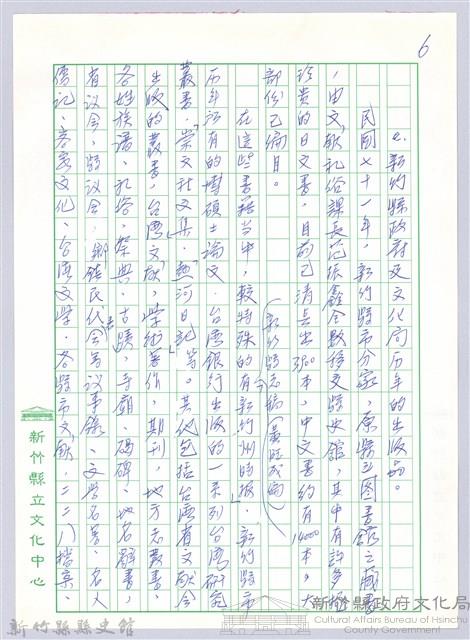 6
2.新竹縣政府及文化局历年的出版品。
民國七十一年,新竹縣市分家,原縣立图書館之藏書
,由文献礼俗課長范振鑫全數移交縣史館,其中有許多極
珍貴的日文書,目前已清点出3800本,中文書約有14000本,大
部份已編目。
在這些書籍当中,較特殊的有新竹州時报、新竹縣市
新竹縣志稿(黃旺成編)
历年所有的博碩士論文、台湾銀行出版的一系列台湾研究
叢書、崇文社文集、熱河日記等。其他包括台湾省文献会
出版的叢書,台湾文献,学術著作,期刊,地方志叢書、
各姓族譜、礼俗、祭典、古蹟、寺廟、碑碣、地名辞書,
省议会、縣议会、鄉鎮民代表会等议事錄、文学名著、名人
傳記、客家文化、台湾文学、各縣市文献、二二八檔案、
新竹縣立文化中心
新竹縣縣史館
新竹縣政府文化局
Cultural Affairs Bureau of Hsinchu County Government